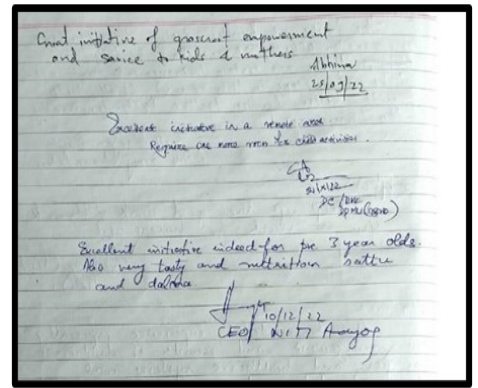 Great initiative of grascroot empowerment
and service to kids & mothers
Abhinav
25/09/22
Excellent initiative in a remote area
Require one more room for child activities.
DC
Excellent initiative indeed for pre 3 year olds.
Also very tasty and nutrition sattu
and dalma
10/12/22
CEO NITI Aayog